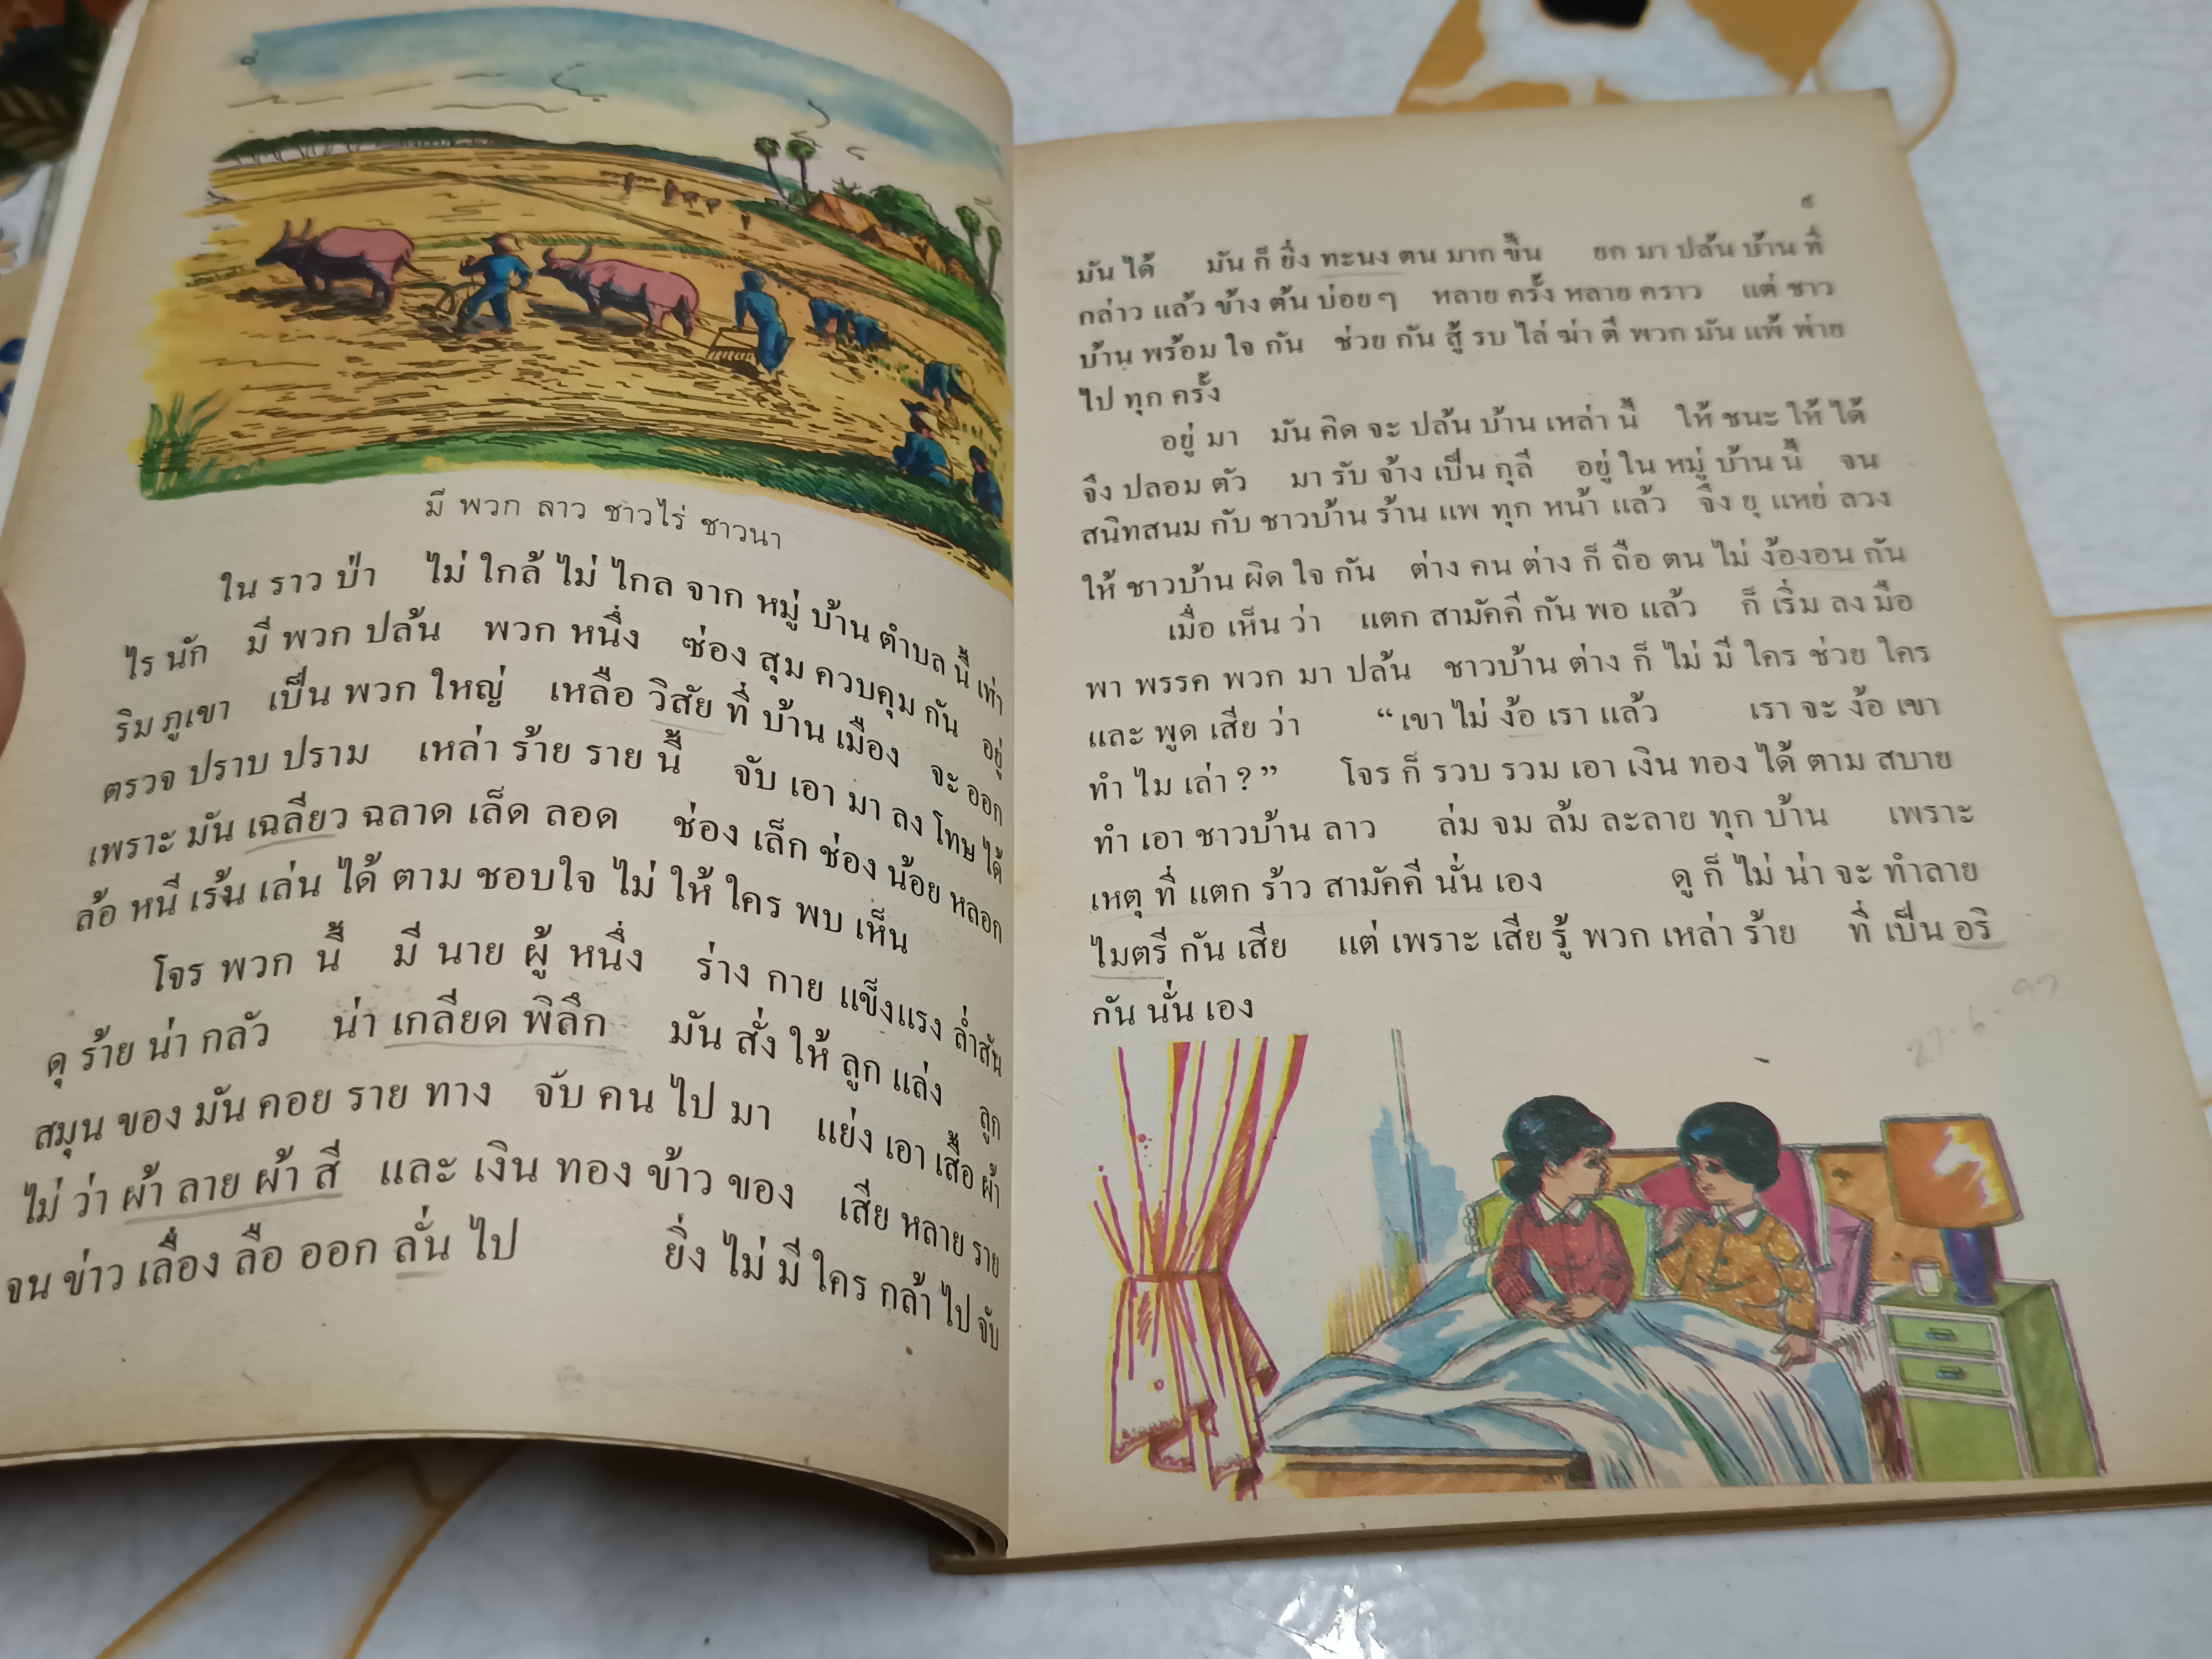 ๘
มี พวก ลาว ชาวไร่ ชาวนา
ใน ราว ป่า ไม่ ใกล้ ไม่ ไกล จาก หมู่ บ้าน ตำบล นี้ เท่า
ไร นัก มี พวก ปล้น พวก หนึ่ง ซ่อง สุม ควบคุม กัน อยู่
ริม ภูเขา เป็น พวก ใหญ่ เหลือ วิสัย ที่ บ้าน เมือง จะ ออก
ตรวจ ปราบ ปราม เหล่า ร้าย ราย นี้ จับ เอา มา ลง โทษ ได้
เพราะ มัน เฉลียว ฉลาด เล็ด ลอด ช่อง เล็ก ช่อง น้อย หลอก
ล้อ หนี เร้น เล่น ได้ ตาม ชอบใจ ไม่ ให้ ใคร พบ เห็น
โจร พวก นี้ มี นาย ผู้ หนึ่ง ร่าง กาย แข็งแรง ล่ำสัน
ดุ ร้าย น่า กลัว น่า เกลียด พิลึก มัน สั่ง ให้ ลูก แล่ง ลูก
สมุน ของ มัน คอย ราย ทาง จับ คน ไป มา แย่ง เอา เสื้อ ผ้า
ไม่ ว่า ผ้า ลาย ผ้า สี และ เงิน ทอง ข้าว ของ เสีย หลาย ราย
จน ข่าว เลื่อง ลือ ออก ลั่น ไป ยิ่ง ไม่ มี ใคร กล้า ไป จับ
๙
มัน ได้ มัน ก็ ยิ่ง ทะนง ตน มาก ขึ้น ยก มา ปล้น บ้าน ที่
กล่าว แล้ว ข้าง ต้น บ่อย ๆ หลาย ครั้ง หลาย คราว แต่ ชาว
บ้าน พร้อม ใจ กัน ช่วย กัน สู้ รบ ไล่ ฆ่า ตี พวก มัน แพ้ พ่าย
ไป ทุก ครั้ง
อยู่ มา มัน คิด จะ ปล้น บ้าน เหล่า นี้ ให้ ชนะ ให้ ได้
จึง ปลอม ตัว มา รับ จ้าง เป็น กุลี อยู่ ใน หมู่ บ้าน นี้ จน
สนิทสนม กับ ชาวบ้าน ร้าน แพ ทุก หน้า แล้ว จึง ยุ แหย่ ลวง
ให้ ชาวบ้าน ผิด ใจ กัน ต่าง คน ต่าง ก็ ถือ ตน ไม่ ง้องอน กัน
เมื่อ เห็น ว่า แตก สามัคคี กัน พอ แล้ว ก็ เริ่ม ลง มือ
พา พรรค พวก มา ปล้น ชาวบ้าน ต่าง ก็ ไม่ มี ใคร ช่วย ใคร
และ พูด เสีย ว่า “เขา ไม่ ง้อ เรา แล้ว เรา จะ ง้อ เขา
ทำ ไม เล่า ?” โจร ก็ รวบ รวม เอา เงิน ทอง ได้ ตาม สบาย
ทำ เอา ชาวบ้าน ลาว ล่ม จม ล้ม ละลาย ทุก บ้าน เพราะ
เหตุ ที่ แตก ร้าว สามัคคี นั่น เอง ดู ก็ ไม่ น่า จะ ทำลาย
ไมตรี กัน เสีย แต่ เพราะ เสีย รู้ พวก เหล่า ร้าย ที่ เป็น อริ
กัน นั่น เอง
27-6-97